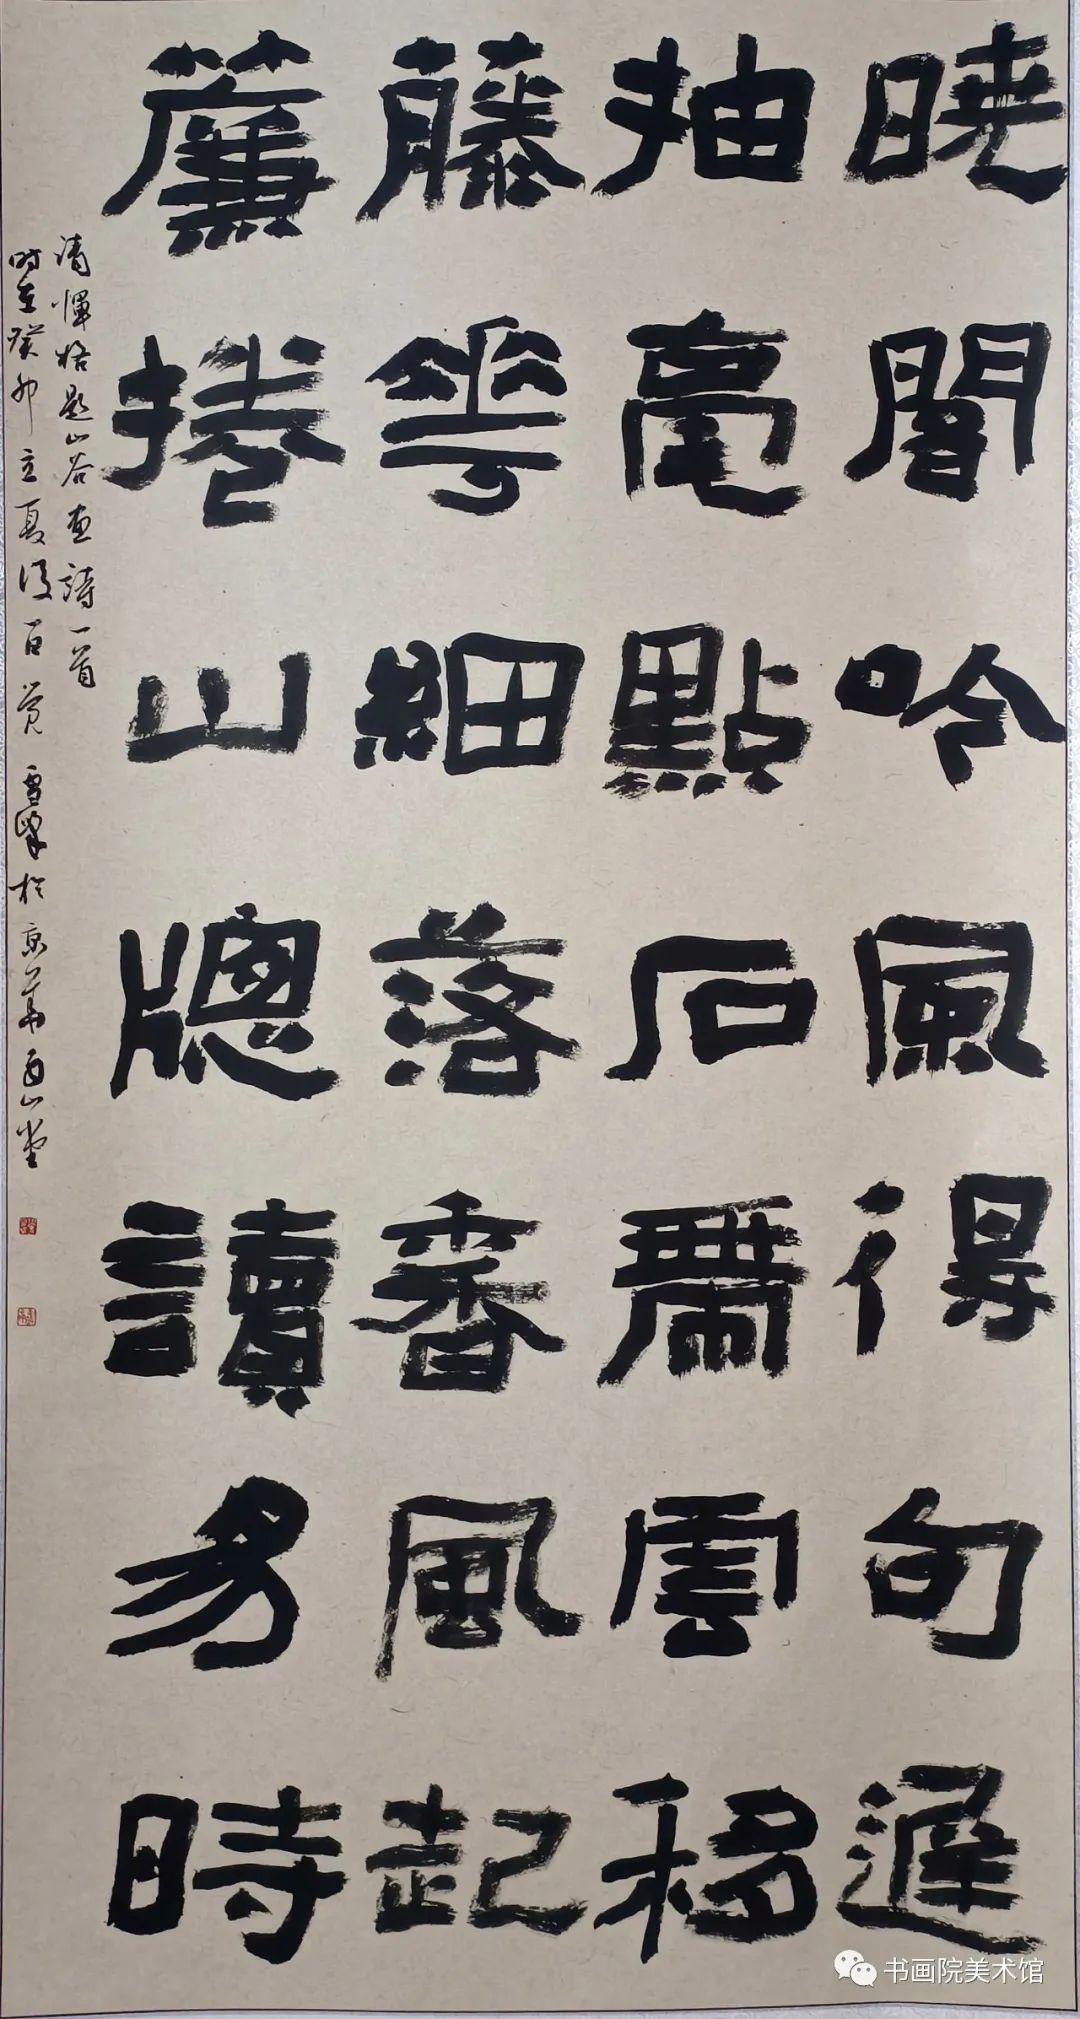 曉閣吟風得句遲
抽毫點石屬雲移
藤花細落香風起
簾捲山牕讀易時
清惲恪題山谷畫詩一首
時在癸卯立夏後百覺雪峰於京華百山堂
书画院美术馆